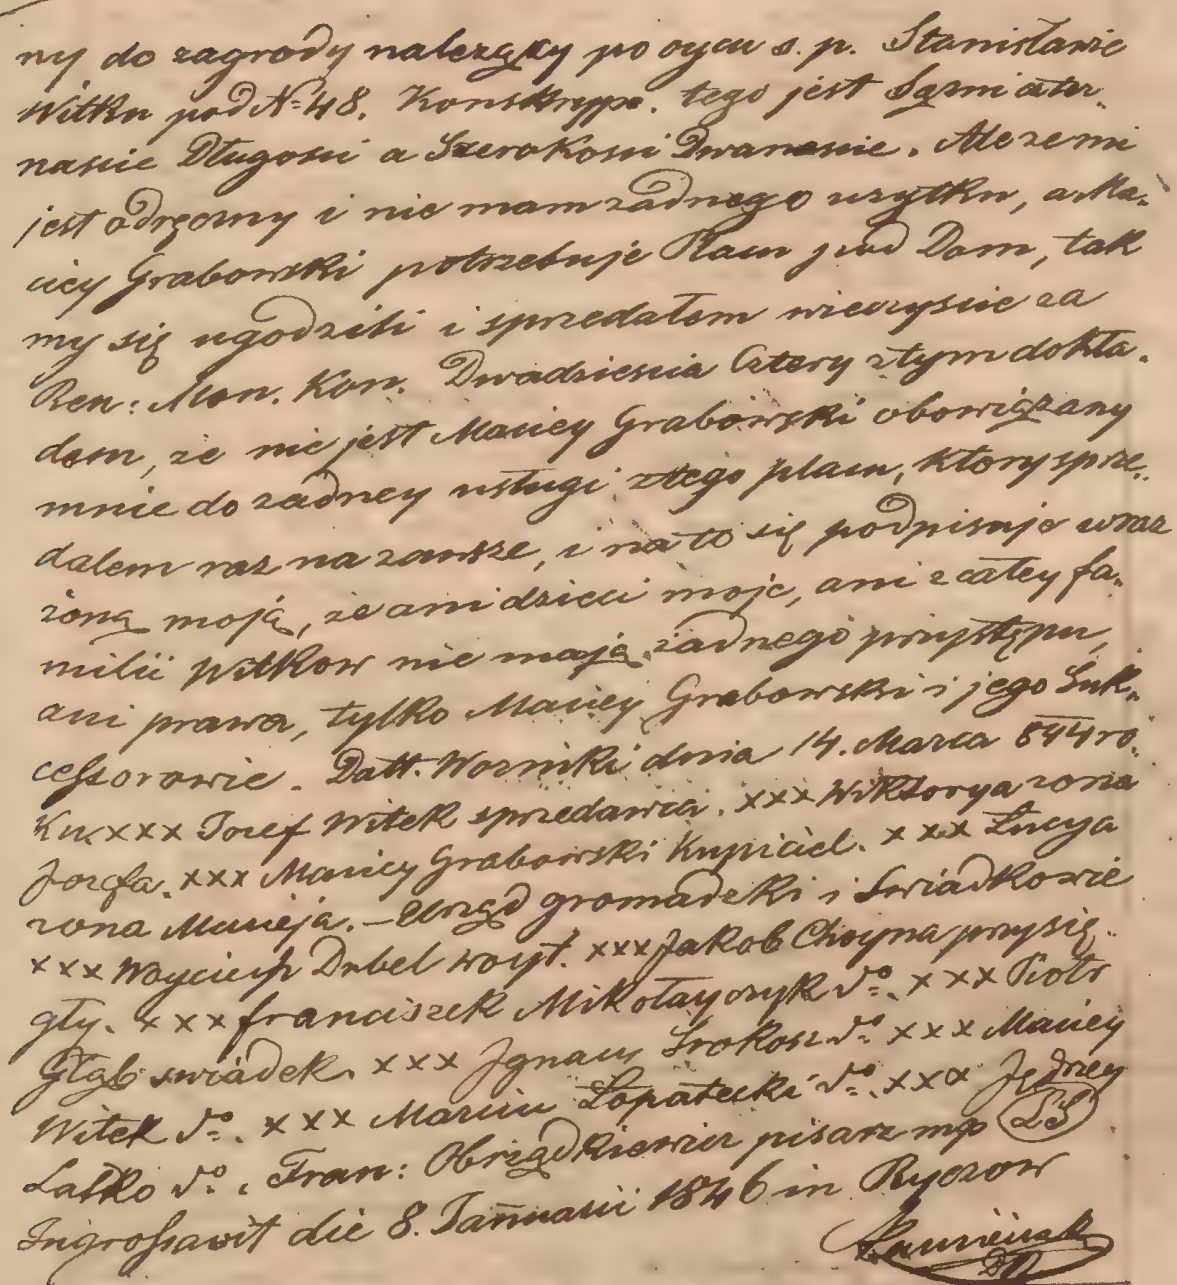 ny do zagrody nalezący po oycu s. p. Stanisławie
Witku pod N=48. Konskrypc. tego jest Sązni czter-
nascie Długosci a Szerokosci Dwanascie. Ale ze mi
jest odręczny i nie mam zadnego uzytku, a Ma-
ciey Grabowski potrzebuje Placu pod Dom, tak
my się ugodzili i sprzedałem wieczyscie za
Ren: Mon. Kon. Dwadziescia Cztery z tym dokła-
dem, ze nie jest Maciey Grabowski obowiązany
mnie do zadney usługi z tego placu, ktory sprze-
dalem raz na zawsze, i na to się podpisuje wraz
zoną moją, ze ani dzieci moje, ani z całey fa-
milii Witkow nie mają zadnego przystępu,
ani prawa, tylko Maciey Grabowski i jego Suk-
cessorowie. Datt. Wozniki dnia 14. Marca 844 ro-
ku. xxx Jozef Witek sprzedawca. xxx Wiktorya zona
Jozefa. xxx Maciey Grabowski Kupiciel. xxx Łucya
zona Macieja. – Urząd gromadzki i Swiadkowie
xxx Woyciech Dubel woyt. xxx Jakob Choyna przysię-
gły. xxx franciszek Mikołayczyk do. xxx Piotr
Głąb swiadek. xxx Jgnacy Srokosz do xxx Maciey
Witek do. xxx Marcin Łopatecki do. xxx Jędrzey
Latko do. Fran: Obrządkiewicz pisarz mp LS
Ingrossavit die 8. Januarii 1846 in Ryczow